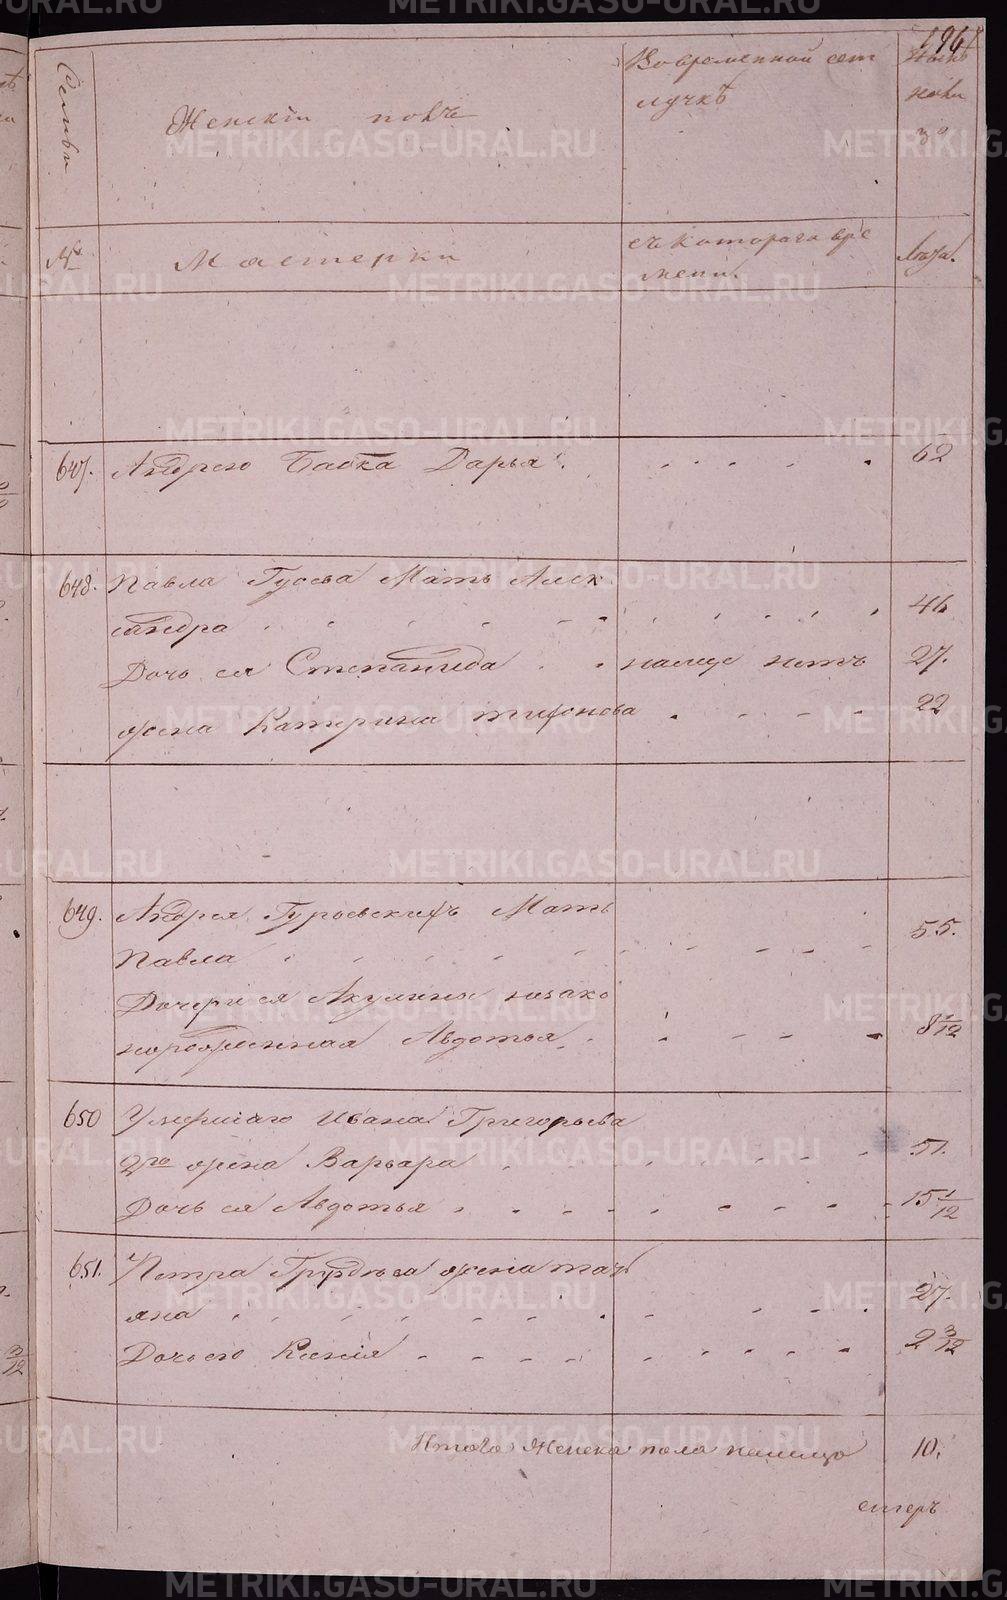 196
Семьи
Женскій полъ
Во временной от
лучкѣ
Нынѣ
№
Мастерки
съ котораго вре
мени.
Лѣта.
647. Андрею Бабка Дарья 62
648. Павла Гусева Мать Алек
сандра 46
Дочь ея Степанида налице нетъ 27.
жена Катерина 22
649. Андрея Мать
Павла 55.
Дочери ея Акулины незако
норожденная Авдотья 8 1/12
650 Умершаго Ивана Григорьева
2го жена Варвара 51.
Дочь ея Авдотья 15 1/12
651. Петра Груздева жена тать
яна 27.
Дочь его Ксенія 2 3/12
Итого Женска пола налицо 10.
METRIKI.GASO-URAL.RU